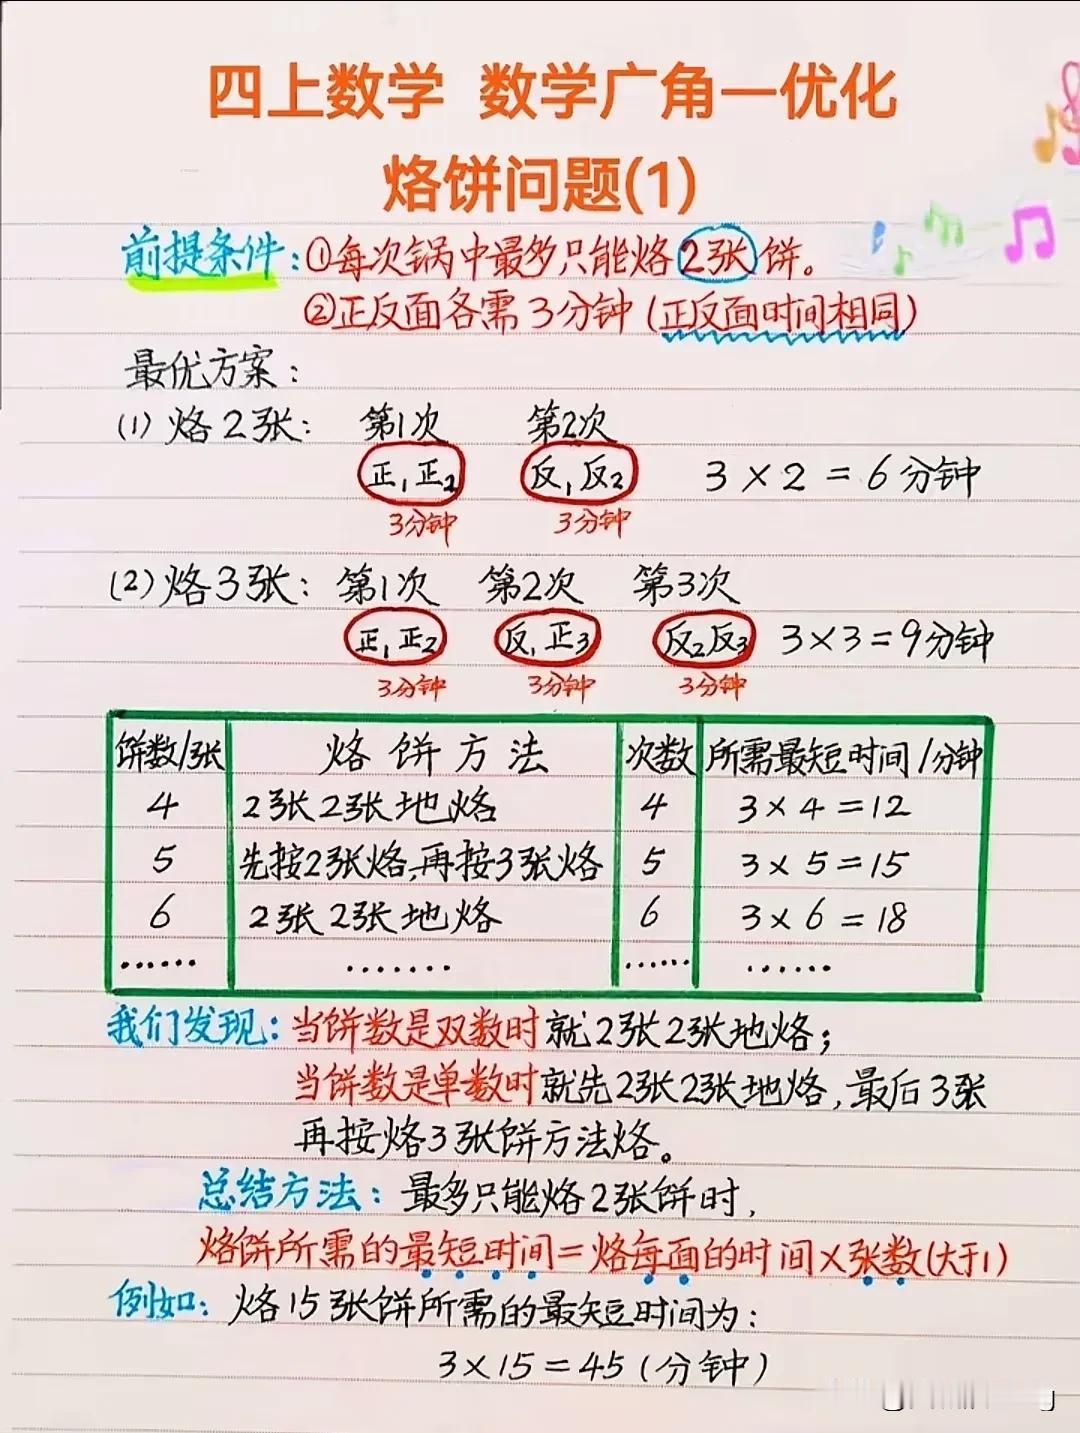 四上数学 数学广角一优化
烙饼问题(1)
前提条件:①每次锅中最多只能烙2张饼。
②正反面各需3分钟(正反面时间相同)
最优方案:
(1)烙2张: 第1次 第2次
正1正2 反1反2 3×2=6分钟
3分钟 3分钟
(2)烙3张: 第1次 第2次 第3次
正1正2 反1正3 反2反3 3×3=9分钟
3分钟 3分钟 3分钟
饼数/张 烙饼方法 次数 所需最短时间/分钟
4 2张2张地烙 4 3×4=12
5 先按2张烙,再按3张烙 5 3×5=15
6 2张2张地烙 6 3×6=18
…… ……. …… ……
我们发现:当饼数是双数时就2张2张地烙;
当饼数是单数时就先2张2张地烙,最后3张
再按烙3张饼方法烙。
总结方法:最多只能烙2张饼时,
烙饼所需的最短时间=烙每面的时间×张数(大于1)
例如:烙15张饼所需的最短时间为:
3×15=45(分钟)